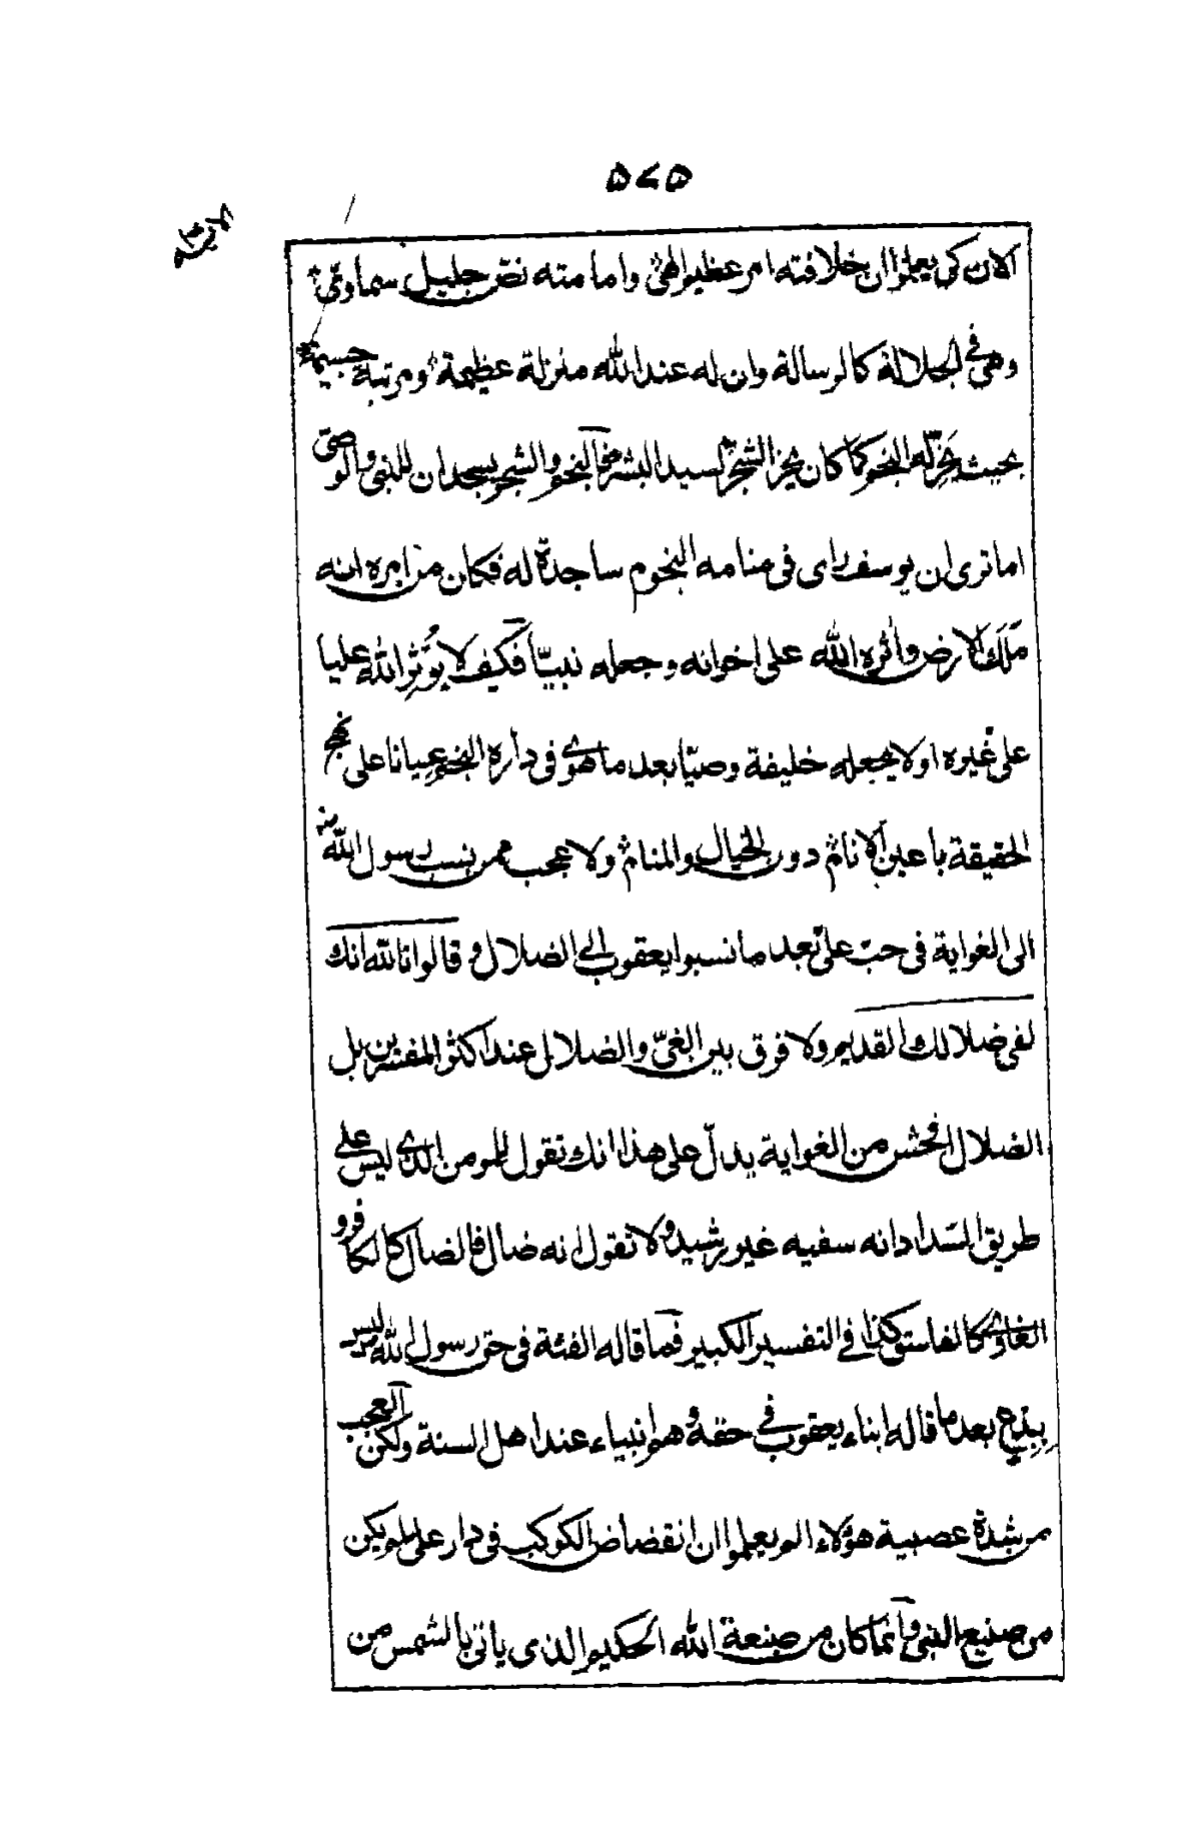 ۵۷۵
الان كى يعلموا ان خلافته امر عظيم الهىّ وامامته نصّ جليل سماوىّ
وهى فى الجلالة كالرسالة وان له عند الله منزلة عظيمة ومرتبة جسيمة
بحيث يخرّ له النجم كما كان يخرّ الشجر لسيد البشر فالنجم والشجر يسجدان للنبى والوصىّ
اما ترى ان يوسف راى فى منامه النجوم ساجدة له فكان من امره انه
مَلَكَ الارض وأثره الله على اخوانه وجعله نبيّا فكيف لا يُؤثِر الله عليا
على غيره او لا يجعله خليفة وصيّا بعد ما هوى فى داره النجم عيانا على نهج
الحقيقة باعين الانام دون الخيال والمنام ولا عجب ممن نسب رسول الله ص
الى الغواية فى حبّ علىّ بعد ما نسبوا يعقوب الى الضلال وقالوا تالله انك
لفى ضلالك القديم ولا فرق بين الغىّ والضلال عند اكثر المفسرين بل
الضلال افحش من الغواية يدلّ على هذا انك تقول للمومن الذى ليس على
طريق السداد انه سفيه غير رشيد ولا تقول انه ضال فالضال كالكافر و
الغاوى كالفاسق كذا فى التفسير الكبير فما قاله الفئة فى حق رسول الله ليس
ببِدْعٍ بعد ما قاله ابناء يعقوب فى حقه وهم انبياء عند اهل السنة ولكن العجب
من شدة عصبية هؤلاء الم يعلموا ان انقضاض الكوكب فى دار على لم يكن
من صنيع النبى وانما كان من صنعة الله الحكيم الذى ياتى بالشمس من